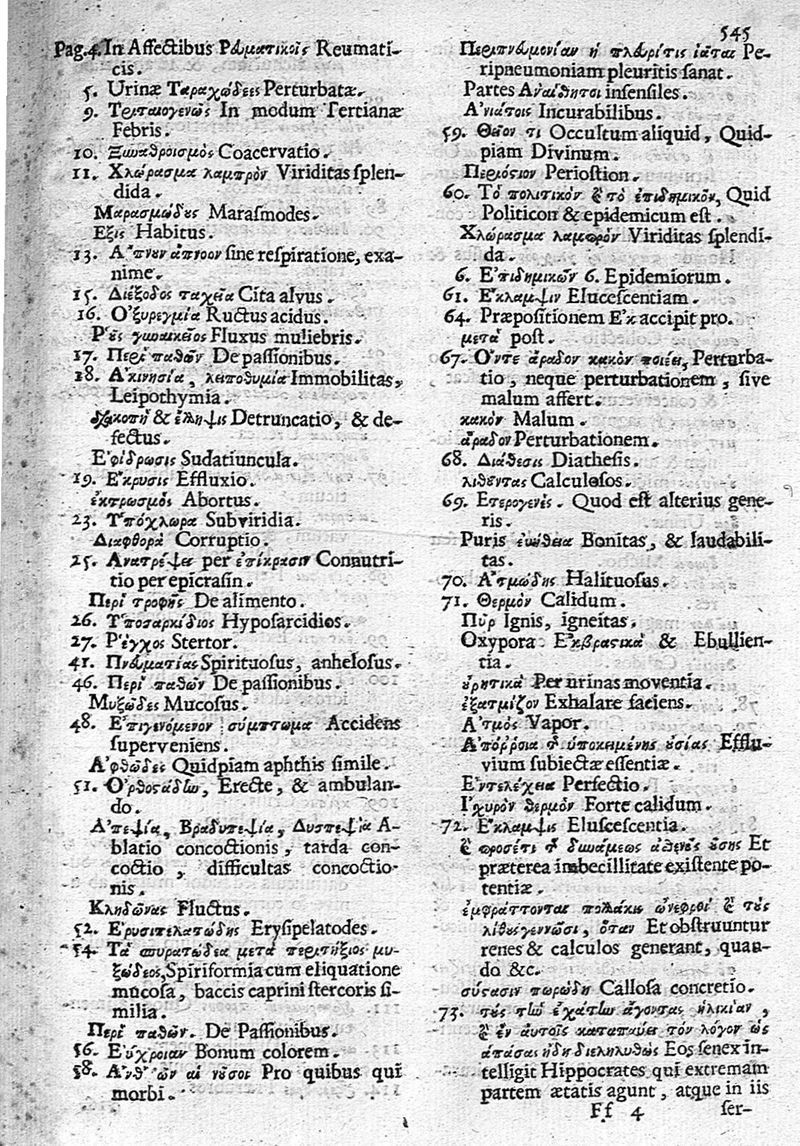 545
Pag.4. In Affectibus Ρευματικοῖς Reumati-
cis.
5. Urinæ Ταραχώδεες Perturbatæ.
9. Τριταιογενῶς In modum Tertianæ
Febris.
10. Ξυναθροισμὸς Coacervatio.
11. Χλώρασμα λαμπρὸν Viriditas splen-
dida.
Μαρασμώδους Marasmodes.
Εξις Habitus.
13. Α῎πνουν ἄπνοον sine respiratione, exa-
nime.
15. Διέξοδος ταχεῖα Cita alvus.
16. Ο᾽ξυρεγμία Ructus acidus.
Ρ῾οῦς γυναικεῖος Fluxus muliebris.
17. Περὶ παθῶν De passionibus.
18. Α᾽κινησία, λειποθυμία Immobilitas,
Leipothymia.
& ἔλλειψις Detruncatio, & de-
fectus.
Ε᾽φίδρωσις Sudatiuncula.
19. Ε῎κρυσις Effluxio.
ἐκτρωσμὸς Abortus.
23. Υ῾πόχλωρα Subviridia.
Διαφθορὰ Corruptio.
25. Ανατρέψει per ἐπίκρασιν Connutri-
tio per epicrasin.
Περὶ τροφῆς De alimento.
26. Υ῾ποσαρκίδιος Hyposarcidios.
27. Ρ῾έγχος Stertor.
41. Πνευματίας Spirituosus, anhelosus.
46. Περὶ παθῶν De passionibus.
Μυξῶδες Mucosus.
48. Ε᾽πιγενόμενον σύμπτωμα Accidens
superveniens.
Α᾽φθῶδες Quidpiam aphthis simile.
51. Ο᾽ρθοστάδην, Erecte, & ambulan-
do.
Α᾽πεψία, Βραδυπεψία, Δυσπεψία A-
blatio concoctionis, tarda con-
coctio, difficultas concoctio-
nis.
Κληδῶνας Fluctus.
52. Ε᾽ρυσιπελατώδης Erysipelatodes.
54. Τὰ σπυρατώδεα μετὰ περιτήξιος μυ-
ξώδεος, Spiriformia cum eliquatione
mucosa, baccis caprini stercoris si-
milia.
Περὶ παθῶν. De Passionibus.
56. Ευ῎χροιαν Bonum colorem.
58. Α᾽νθ᾽ ὧν αἱ νοῦσοι Pro quibus qui
morbi.
Περιπνευμονίαν ἡ πλευρῖτις ἰᾶται Pe-
ripneumoniam pleuritis sanat.
Partes Α᾽ναίσθητοι insensiles.
Α᾽νιάτοις Incurabilibus.
59. Θεῖον τι Occultum aliquid, Quid-
piam Divinum.
Περιόστιον Periostion.
60. Τὸ πολιτικὸν & τὸ ἐπιδημικὸν, Quid
Politicon & epidemicum est.
Χλώρασμα λαμπρὸν Viriditas splendi-
da.
6. Ε᾽πιδημικῶν 6. Epidemiorum.
61. Ε῎κλαμψιν Elucescentiam.
64. Præpositionem Ε᾽κ accipit pro.
μετὰ post.
67. Ο῎ντε ἄραδον κακὸν ποιέει, Perturba-
tio, neque perturbationem, sive
malum affert.
κακὸν Malum.
ἄραδον Perturbationem.
68. Διάθεσις Diathesis.
λιθιῶντας Calculosos.
69. Ετερογενὲς. Quod est alterius gene-
ris.
Puris ευήθεια Bonitas, & laudabili-
tas.
70. Α᾽τμώδης Halituosus.
71. Θερμὸν Calidum.
Πῦρ Ignis, igneitas.
Oxypora Ε᾽κβραστικὰ & Ebullien-
tia.
οὐρητικὰ Per urinas moventia.
ἐξατμίζον Exhalare faciens.
Α᾽τμὸς Vapor.
Α᾽πόῤῥοια τῆς ὑποκειμένης οὐσίας Efflu-
vium subiectæ essentiæ.
Ε᾽ντελέχεια Perfectio.
Ι᾽σχυρὸν θερμὸν Forte calidum.
72. Ε῎κλαμψις Eluscescentia.
& προσέτι τῆς δυνάμεως ἀσθενὲς οὔσης Et
præterea imbecillitate existente po-
tentiæ.
ἐμφράττονται πολλάκις νεφροὶ & τοὺς
λίθους γεννῶσι, ὅταν Et obstruuntur
renes & calculos generant, quan-
do &c.
σύστασιν πωρώδη Callosa concretio.
73. τοὺς τὴν ἐσχάτην ἄγοντας ἡλικίαν,
& ἐν αὐτοῖς καταπαύει τὸν λόγον ὡς
ἁπάσας ἤδη διεληλυθὼς Eos senex in-
telligit Hippocrates qui extremam
partem ætatis agunt, atque in iis
Ff 4 ser-